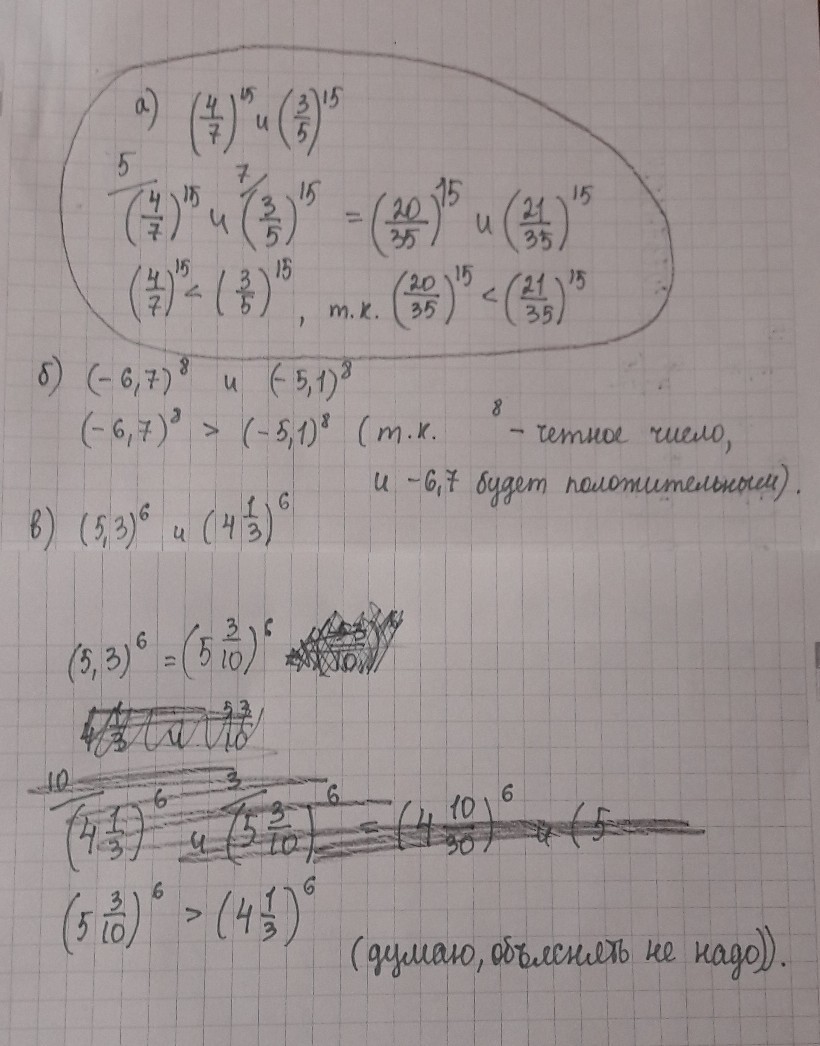 а) (4/7)^15 и (3/5)^15
5 7
(4/7)^15 и (3/5)^15 = (20/35)^15 и (21/35)^15
(4/7)^15 < (3/5)^15, т.к. (20/35)^15 < (21/35)^15
б) (-6,7)^8 и (-5,1)^8
(-6,7)^8 > (-5,1)^8 (т.к. ^8 - четное число,
и -6,7 будет положительным).
в) (5,3)^6 и (4 1/3)^6
(5,3)^6 = (5 3/10)^6
4 1/3 и 53/10
10 3
(4 1/3)^6 и (5 3/10)^6 = (4 10/30)^6 и (5
(5 3/10)^6 > (4 1/3)^6
(думаю, объяснять не надо)).